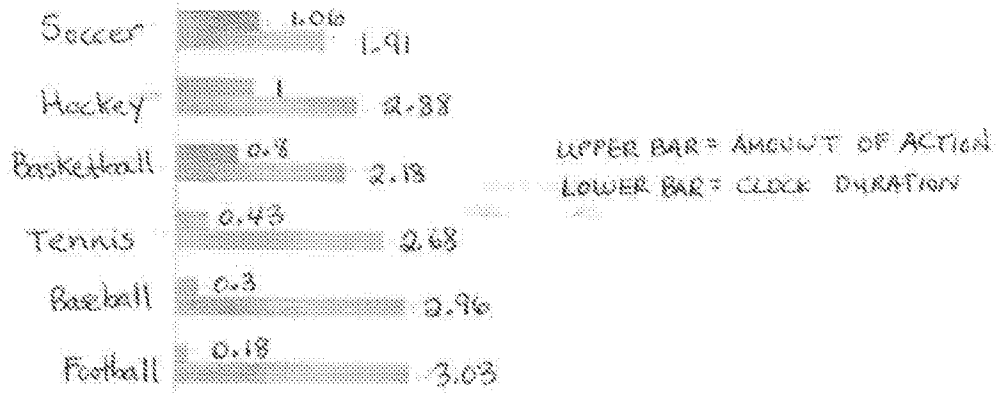 Soccer 1.06
1.91
Hockey 1
2.38
Basketball 0.8
2.18
Tennis 0.43
2.68
Baseball 0.3
2.96
Football 0.18
3.03
UPPER BAR = AMOUNT OF ACTION
LOWER BAR = CLOCK DURATION